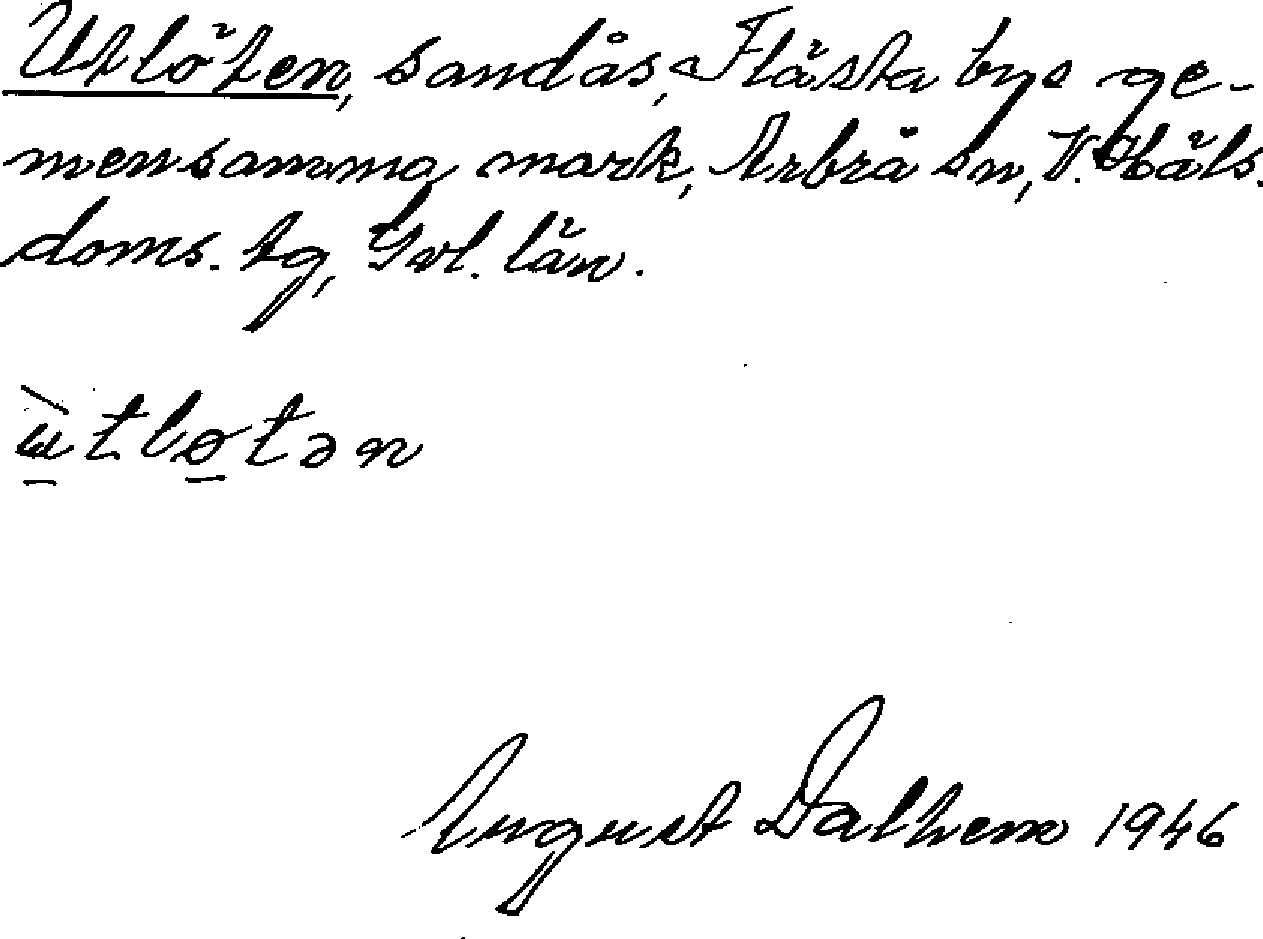 Utlöten, sandås, Flästa bys ge-
mensamma mark, Arbrå sn, V. Häls.
doms. tg, Gvl. län.
ùtløtən
August Dalhem 1946